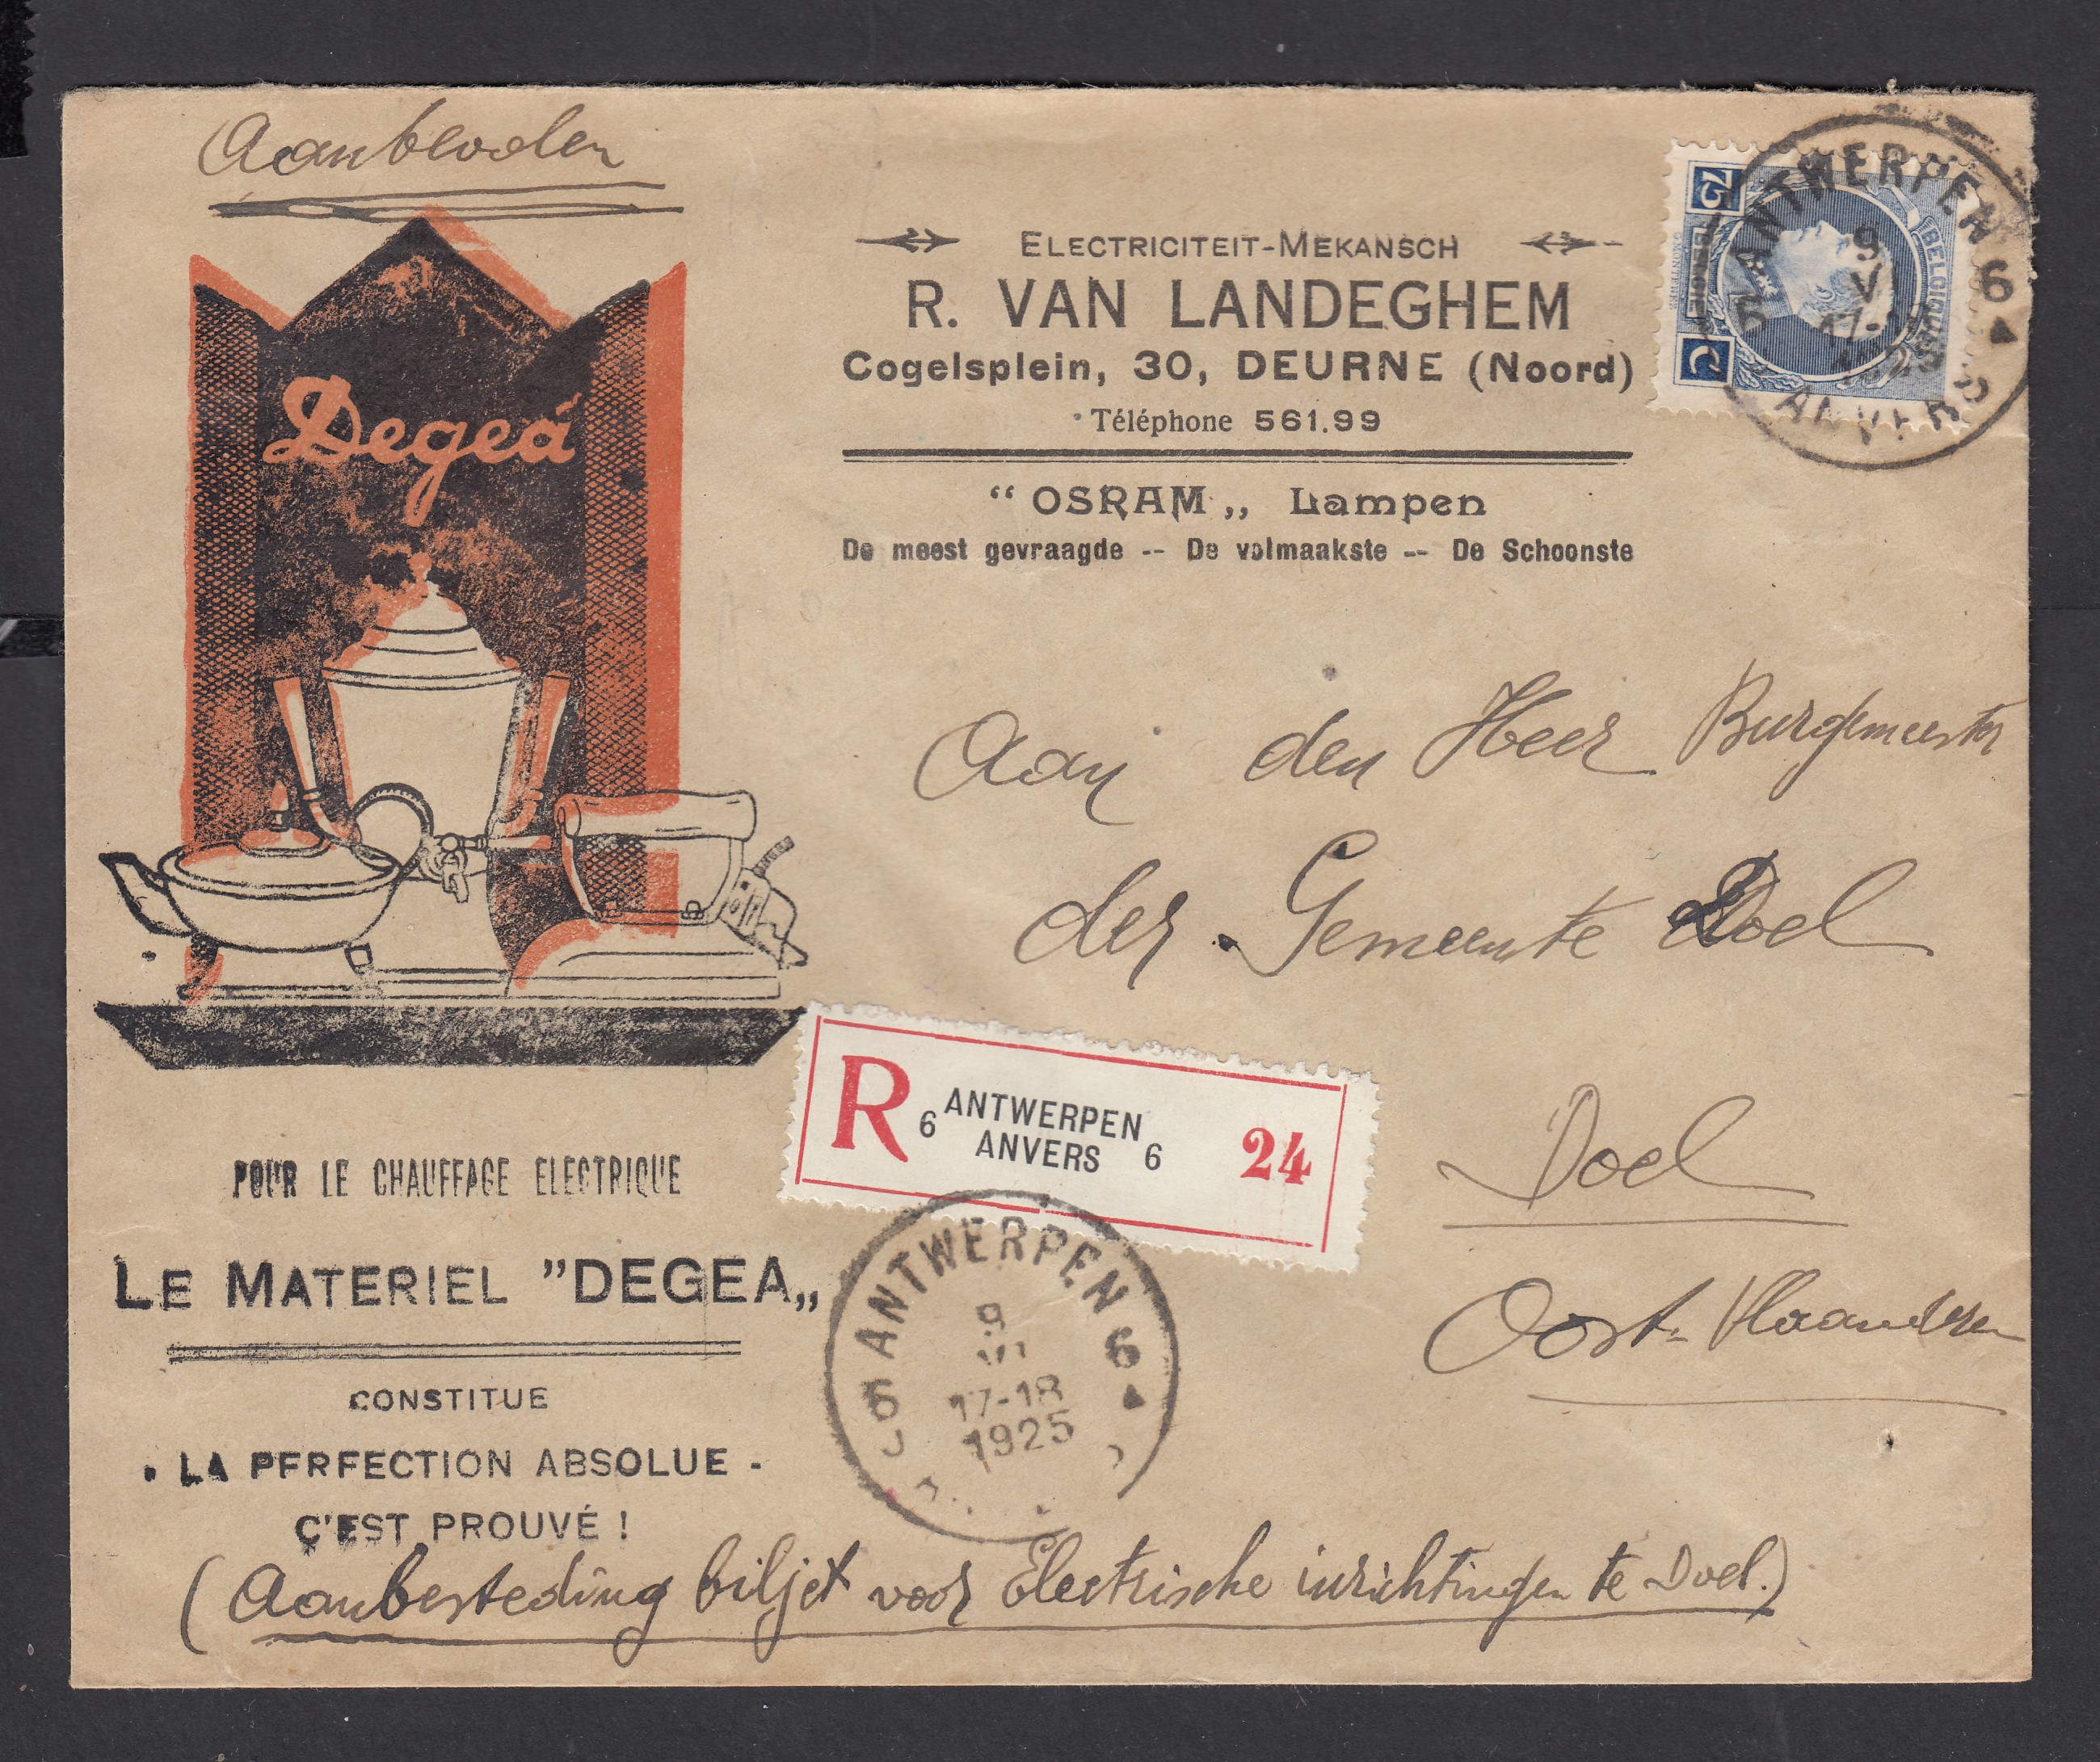 Aanbevolen
Degea
ELECTRICITEIT-MEKANSCH
R. VAN LANDEGHEM
Cogelsplein, 30, DEURNE (Noord)
Téléphone 561.99
“ OSRAM „ Lampen
De meest gevraagde -- De volmaakste -- De Schoonste
75
BELGIQUE
ANTWERPEN 6
9
VI
1925
ANVERS
Aan den Heer Burgemeester
der Gemeente Doel
Doel
Oost-Vlaanderen
R 6 ANTWERPEN
ANVERS 6 24
ANTWERPEN 6
9
VI
17-18
1925
POUR LE CHAUFFAGE ELECTRIQUE
LE MATERIEL ”DEGEA„
CONSTITUE
LA PERFECTION ABSOLUE -
C'EST PROUVÉ !
(Aanbesteding biljet voor Electrische inrichtingen te Doel.)